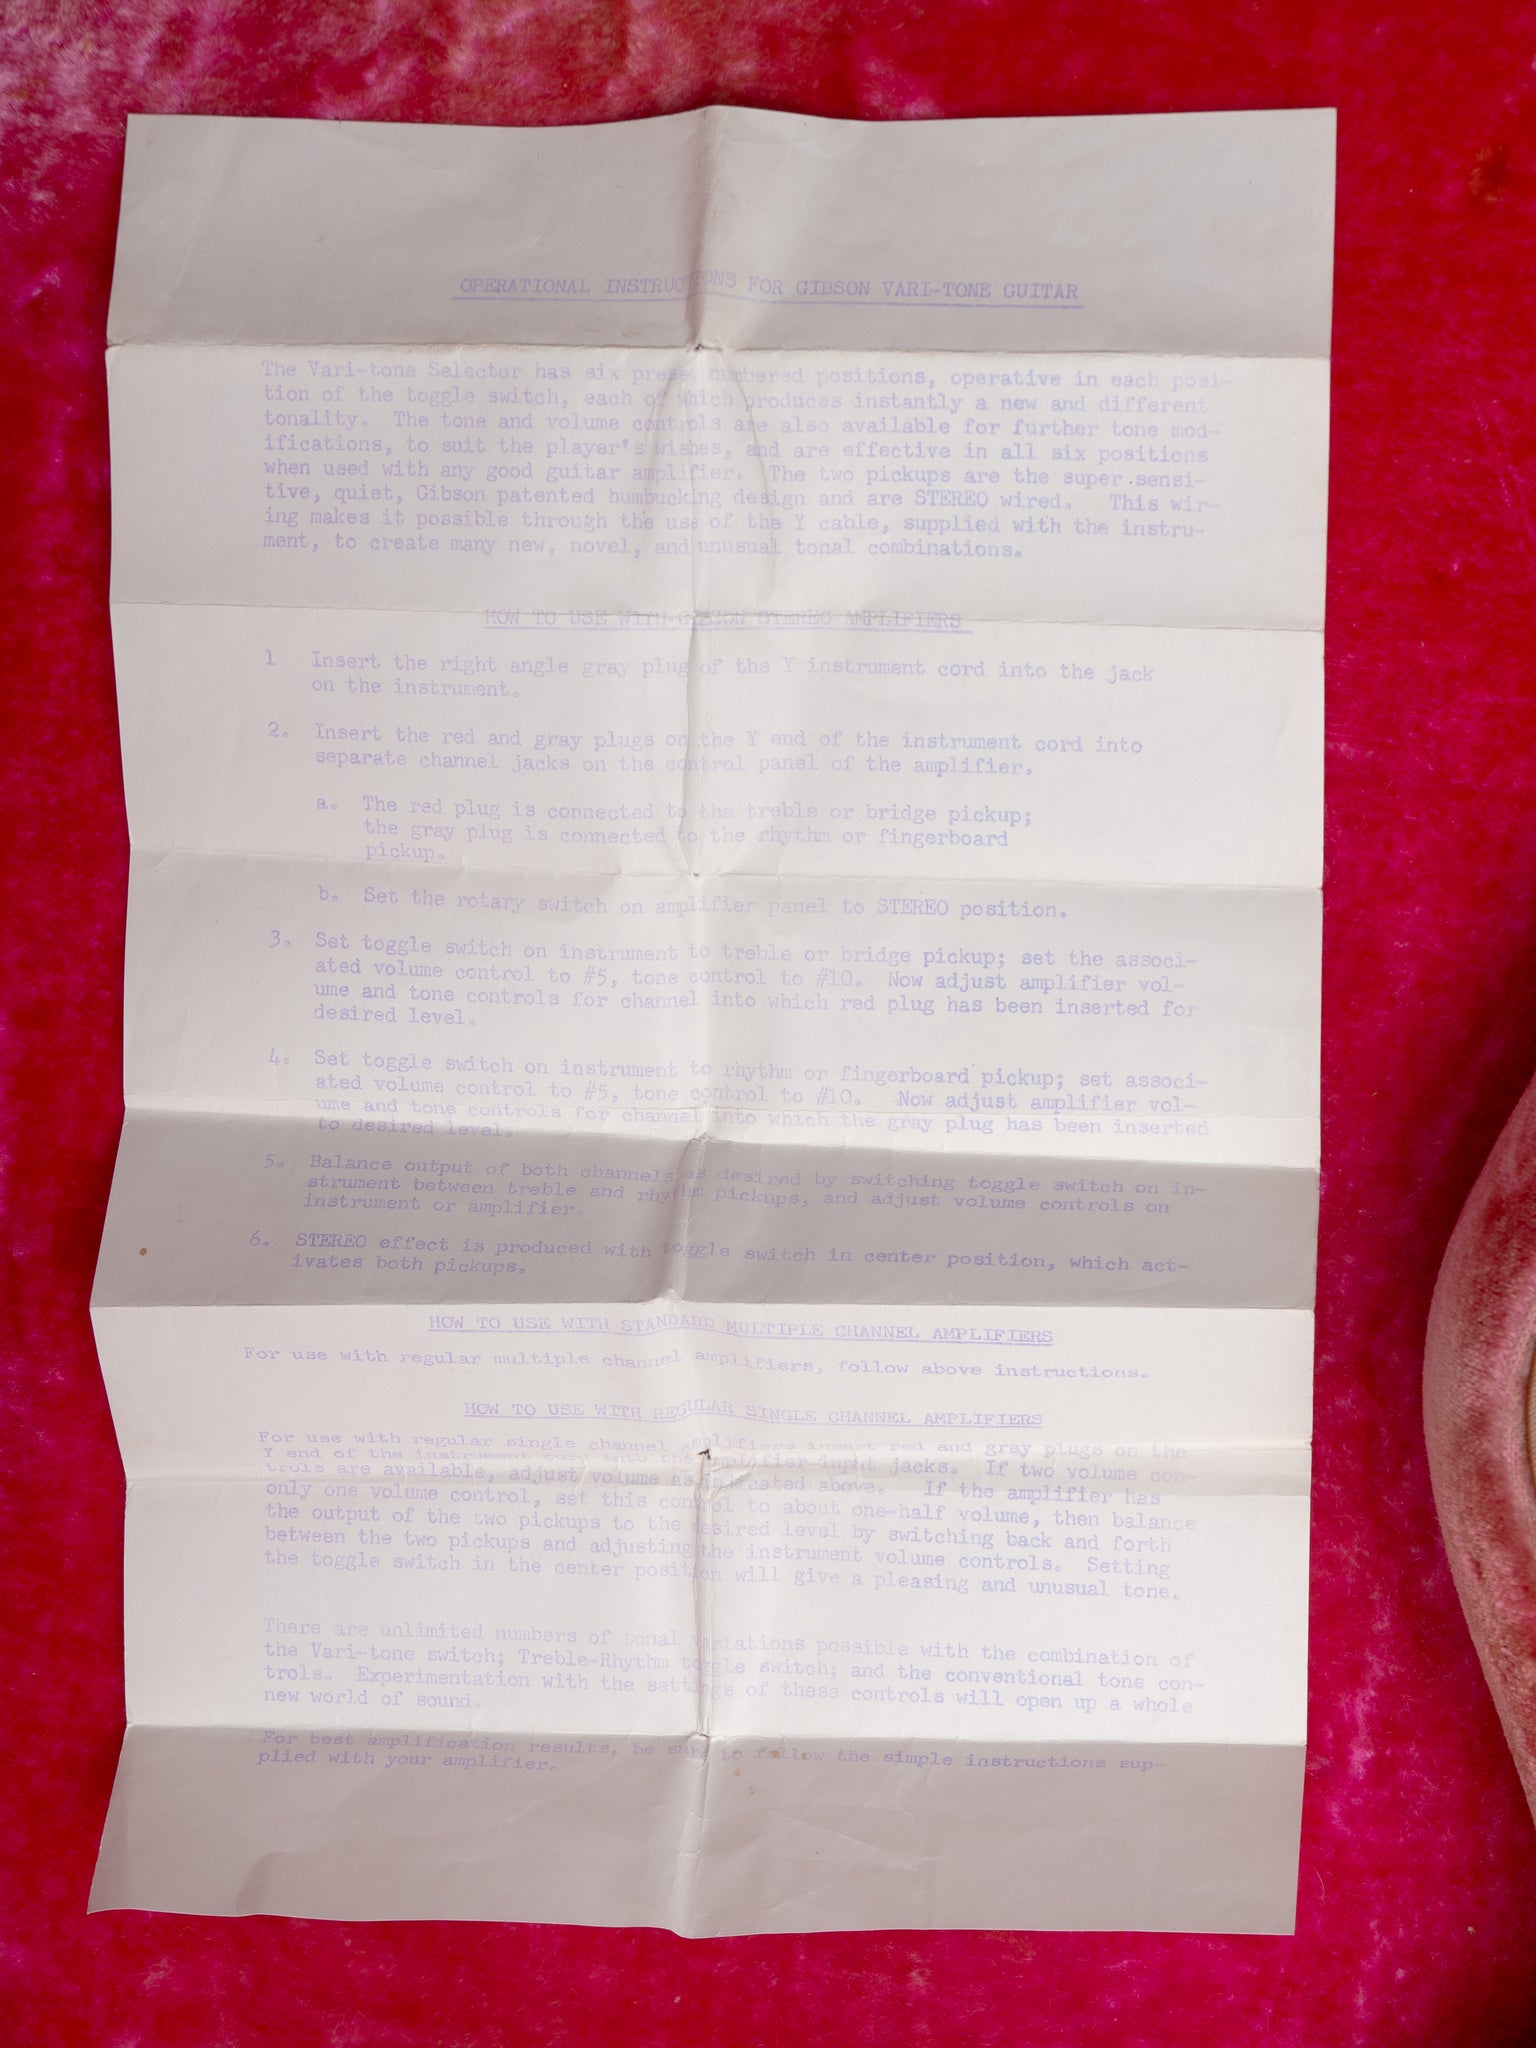 OPERATIONAL INSTRUCTIONS FOR GIBSON VARI-TONE GUITAR
The Vari-tone Selector has six preset numbered positions, operative in each posi-
tion of the toggle switch, each of which produces instantly a new and different
tonality. The tone and volume controls are also available for further tone mod-
ifications, to suit the player's wishes, and are effective in all six positions
when used with any good guitar amplifier. The two pickups are the super sensi-
tive, quiet, Gibson patented humbucking design and are STEREO wired. This wir-
ing makes it possible through the use of the Y cable, supplied with the instru-
ment, to create many new, novel, and unusual tonal combinations.
HOW TO USE WITH GIBSON STEREO AMPLIFIERS
1 Insert the right angle gray plug of the Y instrument cord into the jack
on the instrument.
2. Insert the red and gray plugs on the Y end of the instrument cord into
separate channel jacks on the control panel of the amplifier.
a. The red plug is connected to the treble or bridge pickup;
the gray plug is connected to the rhythm or fingerboard
pickup.
b. Set the rotary switch on amplifier panel to STEREO position.
3. Set toggle switch on instrument to treble or bridge pickup; set the associ-
ated volume control to #5, tone control to #10. Now adjust amplifier vol-
ume and tone controls for channel into which red plug has been inserted for
desired level.
4. Set toggle switch on instrument to rhythm or fingerboard pickup; set associ-
ated volume control to #5, tone control to #10. Now adjust amplifier vol-
ume and tone controls for channel into which the gray plug has been inserted
to desired level.
5. Balance output of both channels as desired by switching toggle switch on in-
strument between treble and rhythm pickups, and adjust volume controls on
instrument or amplifier.
6. STEREO effect is produced with toggle switch in center position, which act-
ivates both pickups.
HOW TO USE WITH STANDARD MULTIPLE CHANNEL AMPLIFIERS
For use with regular multiple channel amplifiers, follow above instructions.
HOW TO USE WITH REGULAR SINGLE CHANNEL AMPLIFIERS
For use with regular single channel amplifiers insert red and gray plugs on the
Y end of the instrument cord into the amplifier input jacks. If two volume con-
trols are available, adjust volume as indicated above. If the amplifier has
only one volume control, set this control to about one-half volume, then balance
the output of the two pickups to the desired level by switching back and forth
between the two pickups and adjusting the instrument volume controls. Setting
the toggle switch in the center position will give a pleasing and unusual tone.
There are unlimited numbers of tonal variations possible with the combination of
the Vari-tone switch; Treble-Rhythm toggle switch; and the conventional tone con-
trols. Experimentation with the settings of these controls will open up a whole
new world of sound.
For best amplification results, be sure to follow the simple instructions sup-
plied with your amplifier.